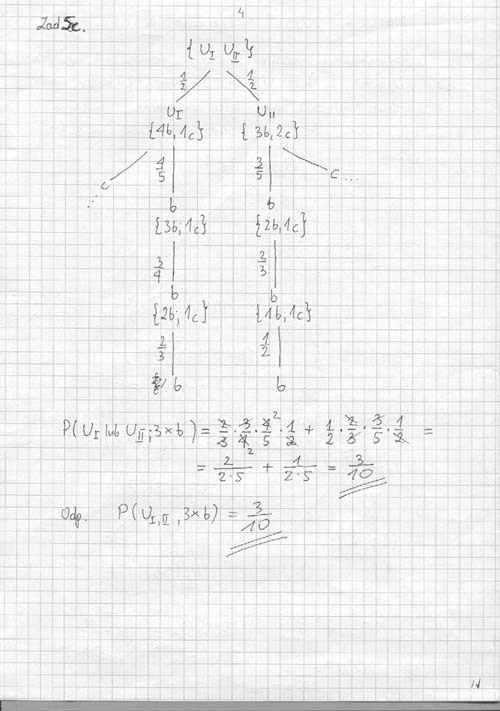 4
Zad 5c.
{ U_I U_II }
1/2 1/2
U_I U_II
{4b, 1c} { 3b, 2c}
4/5 3/5
c c ...
...
b b
{3b; 1c} {2b, 1c}
3/4 2/3
b b
{2b; 1c} {1b, 1c}
2/3 1/2
b b
P( U_I lub U_II ; 3×b) = 2/3 · 3/4 · 4/5 · 1/2 + 1/2 · 2/3 · 3/5 · 1/2 =
= 2/(2·5) + 1/(2·5) = 3/10
Odp. P( U_I,II , 3×b) = 3/10